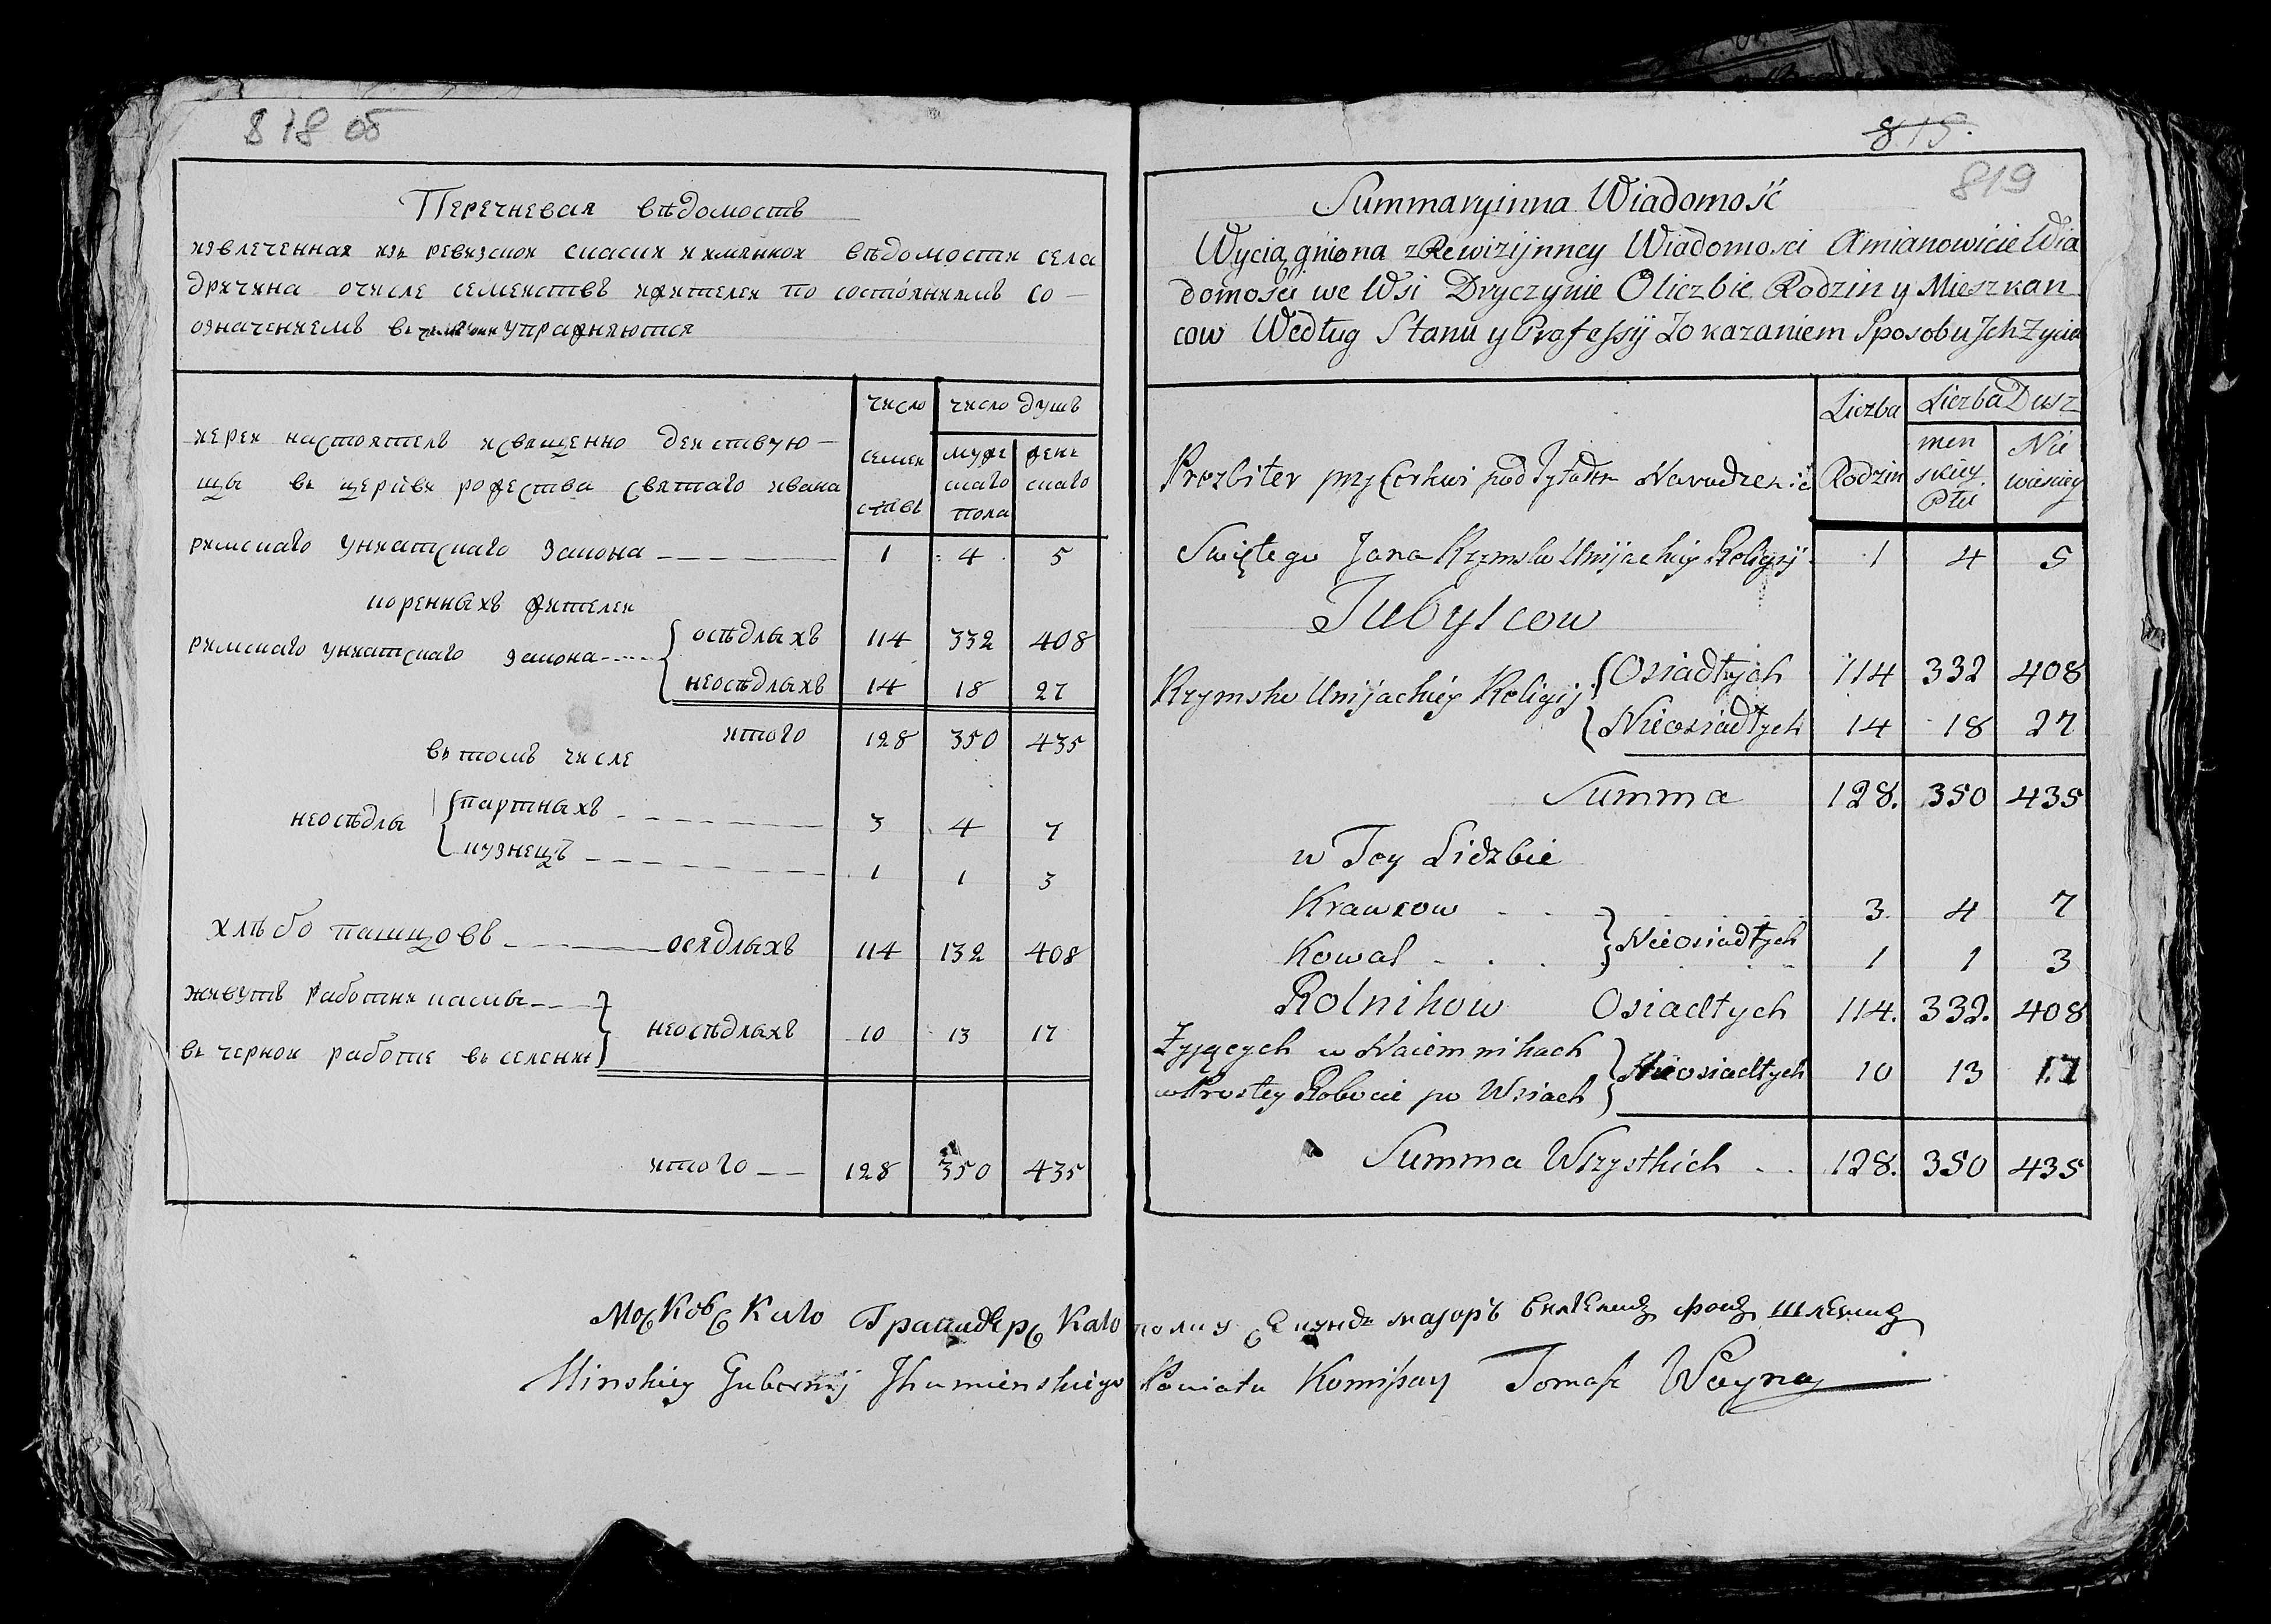 818 об
Перечневая вѣдомость
извлеченная изъ ревизкои сказки и имяннои вѣдомости села
дричина очисле семеиствъ ижителеи по состояниямъ со-
означениемъ въ чемъ они упражняются
число
число душъ
иереи настоятель исвященно деиствую-
семеи
муже
жене
щы въ церькви рожества святаго ивана
скаго
скаго
ствъ
пола
римскаго униатскаго закона
1 4 5
коренныхъ жителеи
римскаго униатскаго закона
осѣдлыхъ 114 332 408
неосѣдлыхъ 14 18 27
итого 128 350 435
въ томъ числе
неосѣдлы
партныхъ 3 4 7
кузнецъ 1 1 3
хлѣбо пашцовъ осядлыхъ 114 132 408
живутъ работникамы
въ чернои работе въ селении
неосѣдлахъ 10 13 17
итого 128 350 435
819.
819
Summaryinna Wiadomość
Wyciągniona z Rewizijnney Wiadomosci Amianowicie Wia
domości we Wsi Dryczynie O liczbie Rodzin y Mieszkan
cow Według Stanu y Professyi Zo kazaniem Sposobu Jch Zycia
Liczba
Liczba Dusz
Prezbiter przy Cerkwi pod Tytułem Narodzenia
Rodzin
men
skiey
Płci
Nie
wieskiey
Swiętego Jana Rzymsko Unijackiey Religij 1 4 5
Tubylcow
Rzymsko Unijackiey Religij
Osiadłych 114 332 408
Nieosiadłych 14 18 27
Summa 128. 350 435
w Tey Lidzbie
Krawcow 3. 4 7
Nieosiadłych
Kowal 1 1 3
Rolnikow Osiadłych 114. 332. 408
Zyjących w Naiemnikach
w Prostey Robocie po Wsiach
Nieosiadłych 10 13 17
Summa Wszystkich 128. 350 435
Московскаго Гранидерскаго полку Секундъ маjоръ фонъ
Minskiey Gubernij Jhumienskiego Powiatu Komissarz Tomasz Woyna